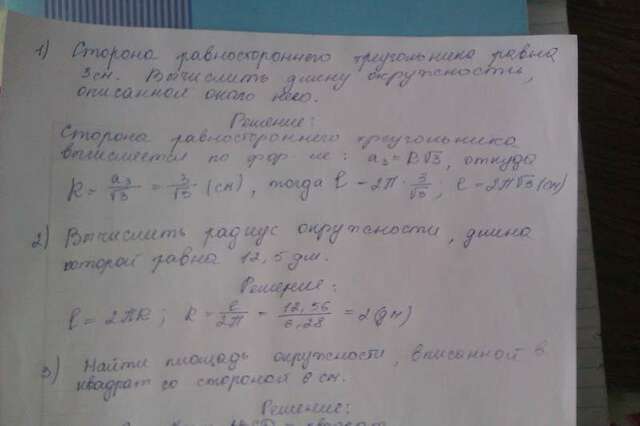 1) Сторона равностороннего треугольника равна
3 см. Вычислить длину окружности,
описанной около него.
Решение:
Сторона равностороннего треугольника
вычисляется по фор-ле: a₃ = R√3, откуда
R = a₃/√3 = 3/√3 (см), тогда l = 2π · 3/√3; l = 2π√3 (см)
2) Вычислить радиус окружности, длина
которой равна 12,5 дм.
Решение:
l = 2πR; R = l/2π = 12,56/6,28 = 2 (дм)
3) Найти площадь окружности, вписанной в
квадрат со стороной 6 см.
Решение: